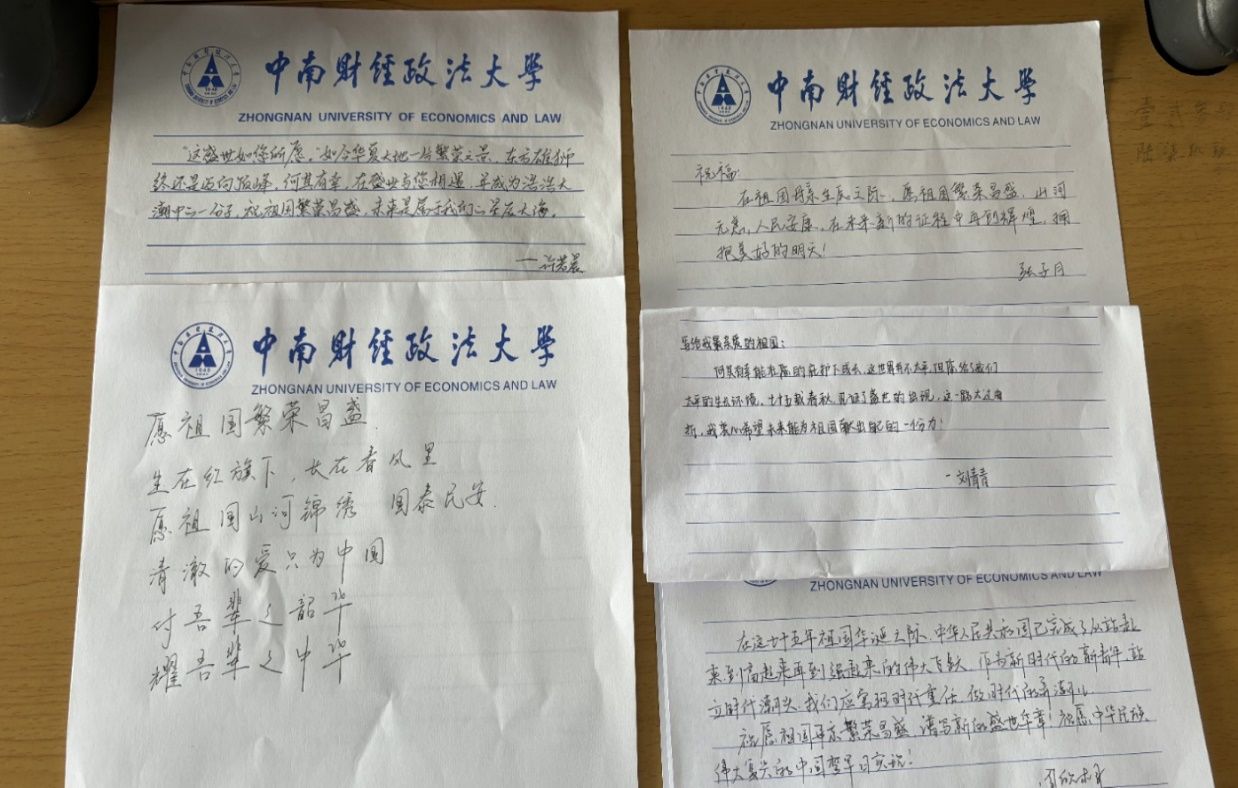 中南财经政法大学
ZHONGNAN UNIVERSITY OF ECONOMICS AND LAW
“这盛世如您所愿。”如今华夏大地一片繁荣之景，东方雄狮
终还是迈向顶峰。何其有幸，在盛世与您相遇，并成为浩浩大
潮中之一份子，祝祖国繁荣昌盛，未来是属于我们的星辰大海。
中南财经政法大学
ZHONGNAN UNIVERSITY OF ECONOMICS AND LAW
愿祖国繁荣昌盛.
生在红旗下，长在春风里
愿祖国山河锦绣 国泰民安.
清澈的爱只为中国
付吾辈之韶华
耀吾辈之中华
中南财经政法大学
ZHONGNAN UNIVERSITY OF ECONOMICS AND LAW
祝福:
在祖国母亲生辰之际，愿祖国繁荣昌盛，山河
无恙，人民安康，在未来新的征程中再创辉煌，拥
抱美好的明天！
张子月
写给我最亲爱的祖国：
何其有幸能在您的庇护下成长，这世界并不太平，但您给我们
太平的生长环境，七十五载春秋，见证了盛世的出现，这一路大过看
折，我衷心希望未来能为祖国献出自己的一份力！
一刘青青
ZHONGNAN UNIVERSITY OF ECONOMICS AND LAW
在这七十五年祖国华诞之际，中华人民共和国已完成了从站起
来到富起来再到强起来的伟大飞跃，作为新时代的新青年，站
立时代潮头，我们应肩担时代重任，做时代的弄潮儿。
祝愿祖国母亲繁荣昌盛，谱写新的盛世华章！祝愿中华民族
伟大复兴的中国梦早日实现！